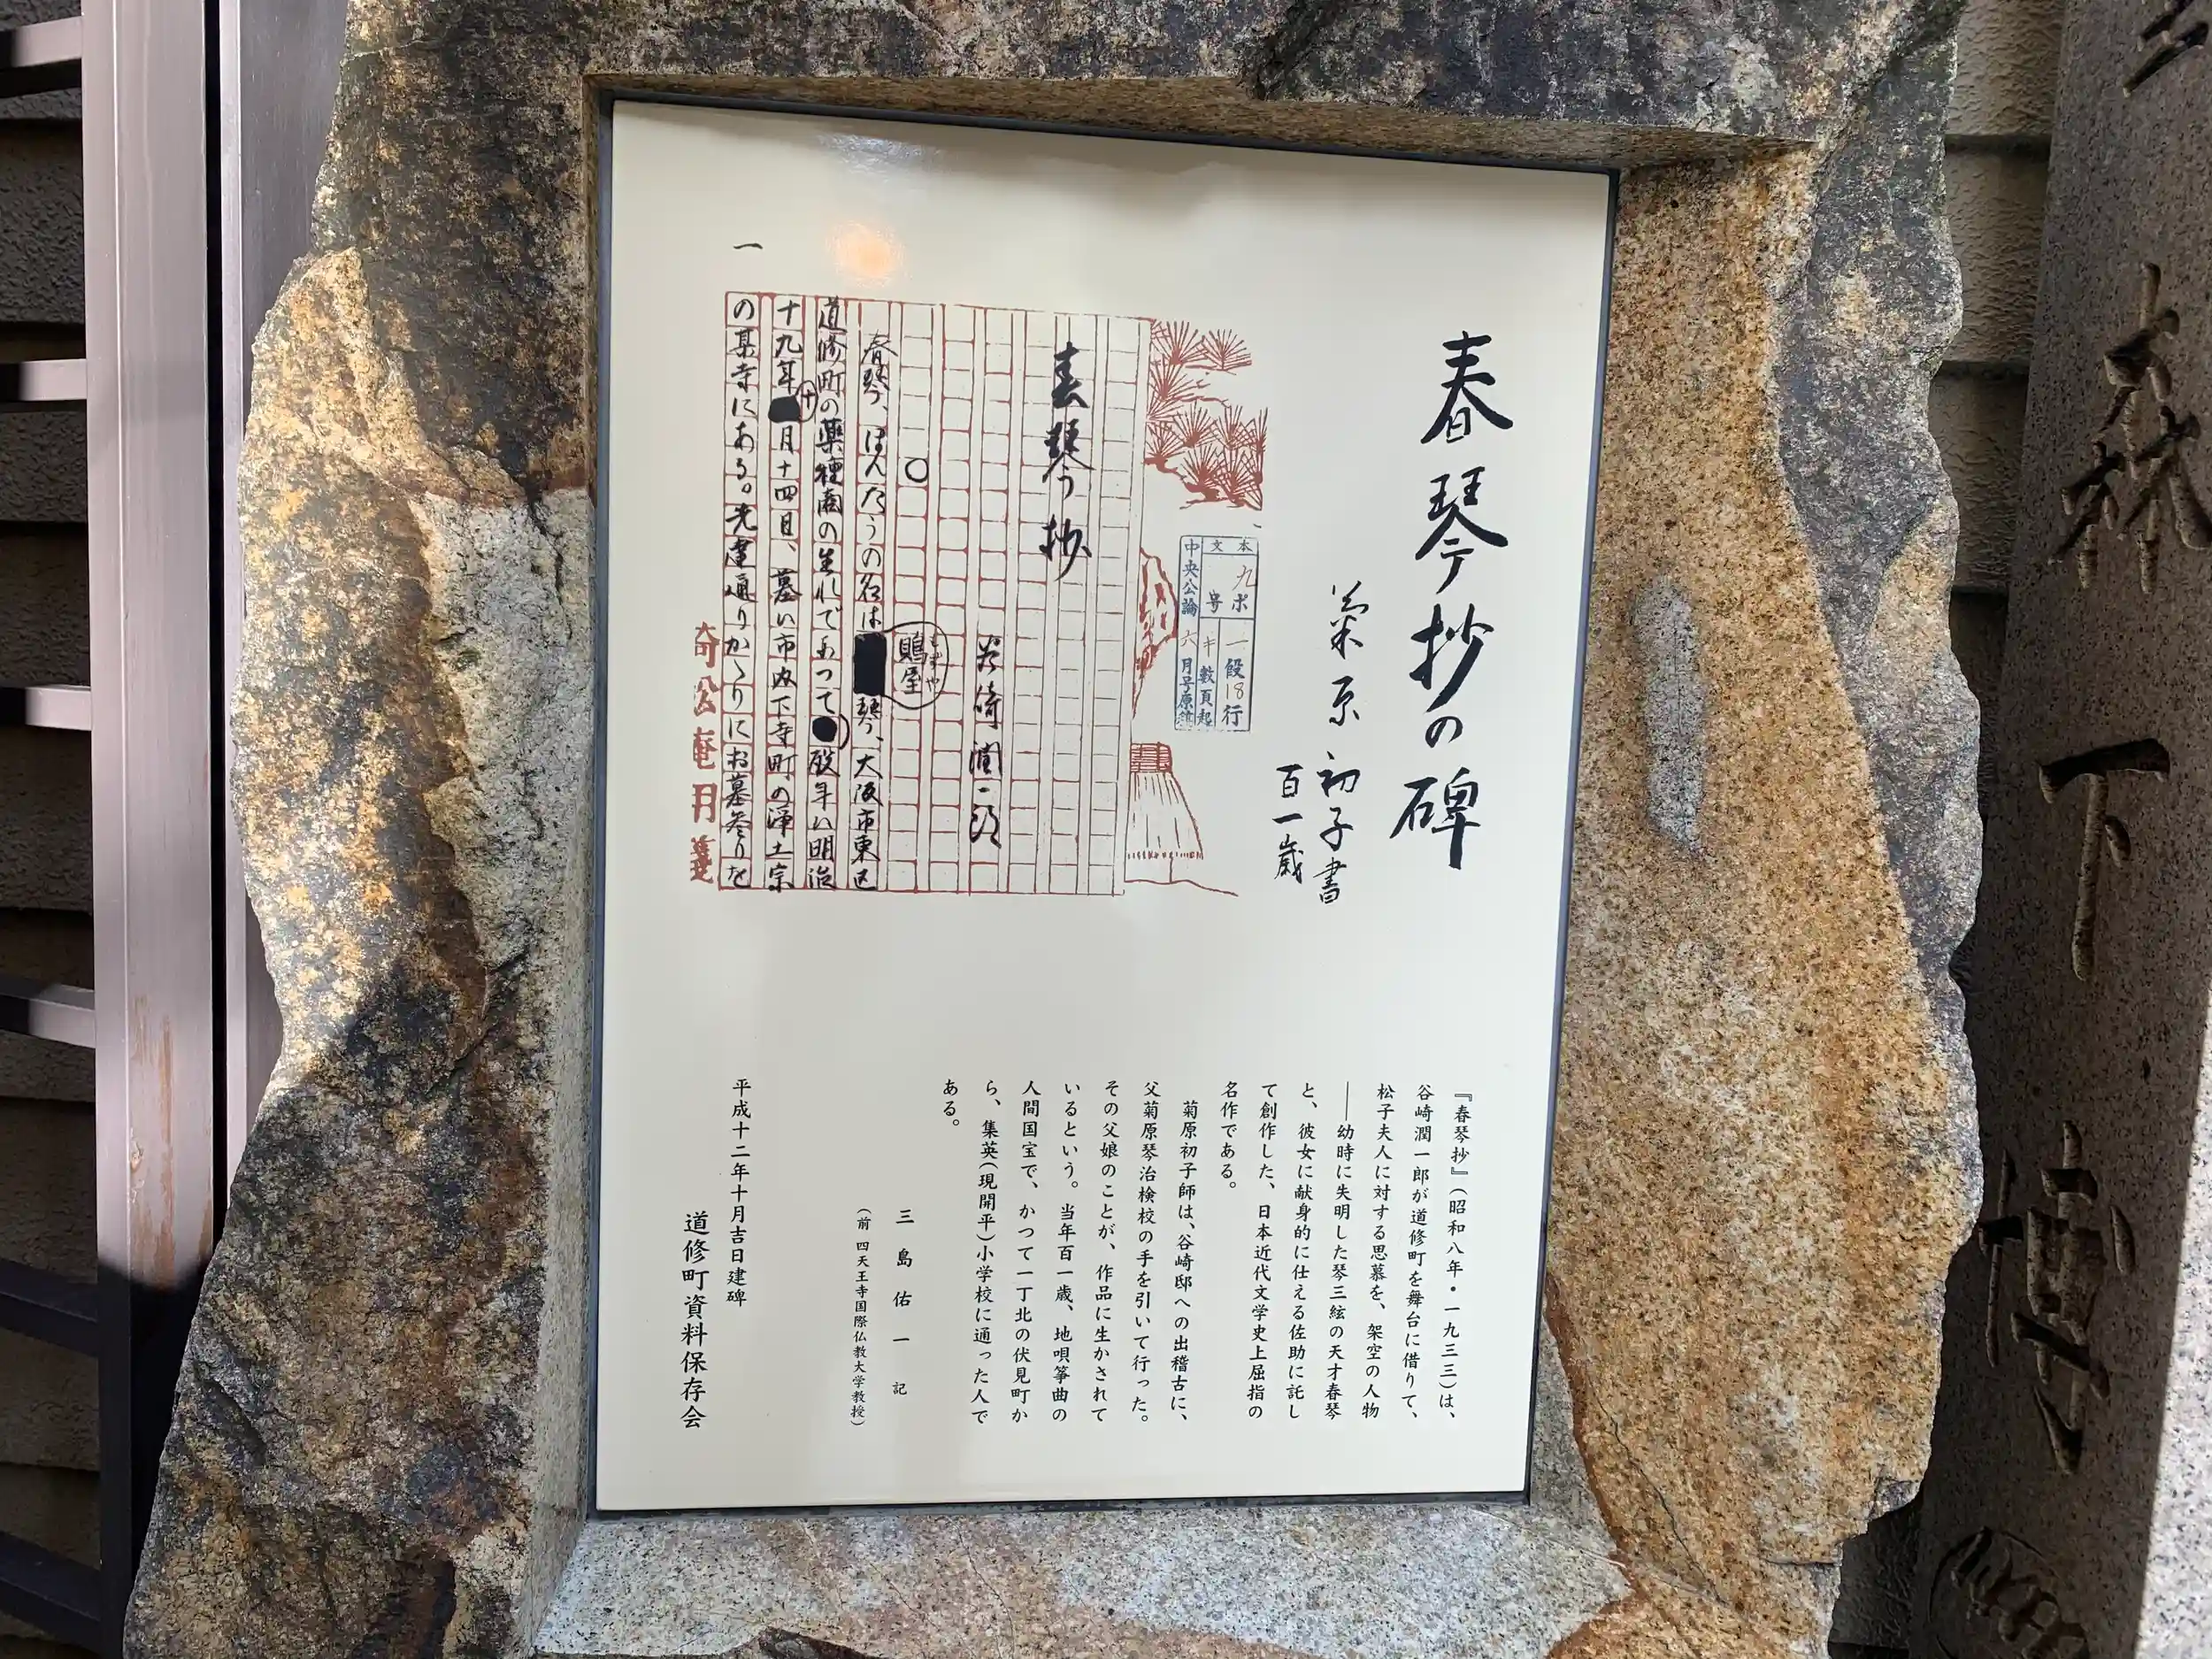 春琴抄の碑
菊原初子書
百一歳
本文
九ポ
号
一段18行
数頁起
中央公論 六月号原稿
春琴抄
谷崎潤一郎
○
鵙屋
もずや
春琴、ほんたうの名は琴、大阪市東区
道修町の薬種商の生れであつて歿年は明治
十九年十月十四日、墓は市内下寺町の浄土宗
の某寺にある。先達通りかゝりにお墓参りを
一
倚松庵用箋
『春琴抄』(昭和八年・一九三三)は、
谷崎潤一郎が道修町を舞台に借りて、
松子夫人に対する思慕を、架空の人物
――幼時に失明した琴三絃の天才春琴
と、彼女に献身的に仕える佐助に託し
て創作した、日本近代文学史上屈指の
名作である。
菊原初子師は、谷崎邸への出稽古に、
父菊原琴治検校の手を引いて行った。
その父娘のことが、作品に生かされて
いるという。当年百一歳、地唄箏曲の
人間国宝で、かつて一丁北の伏見町か
ら、集英(現開平)小学校に通った人で
ある。
三島佑一 記
(前 四天王寺国際仏教大学教授)
平成十二年十月吉日建碑
道修町資料保存会